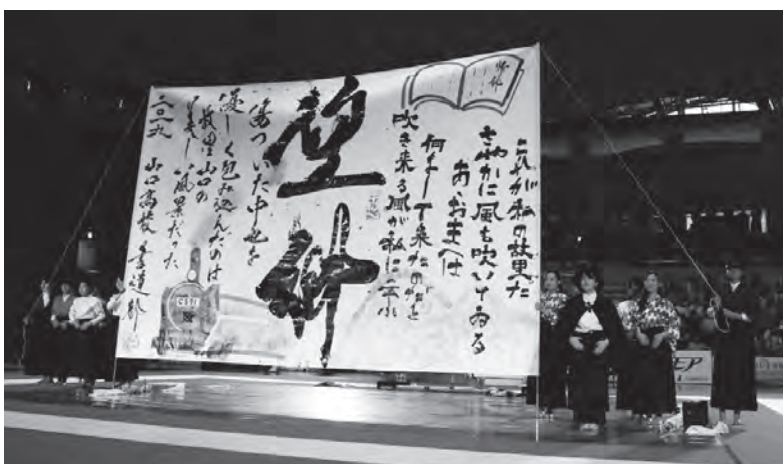 これが私の故里だ
さやかに風も吹いてゐる
あゝおまへは
何をして来たのだと
吹き来る風が私に云ふ
傷ついた中也を
優しく包み込んだのは
故里山口の
美しい風景だった
二〇一九 山口高校書道部
C571